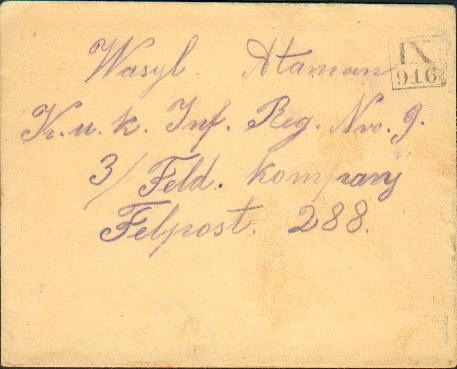 Wasyl Ataman
IX
916
K.u.k. Inf. Reg. Nro. 9.
3/ Feld. kompany
Felpost. 288.